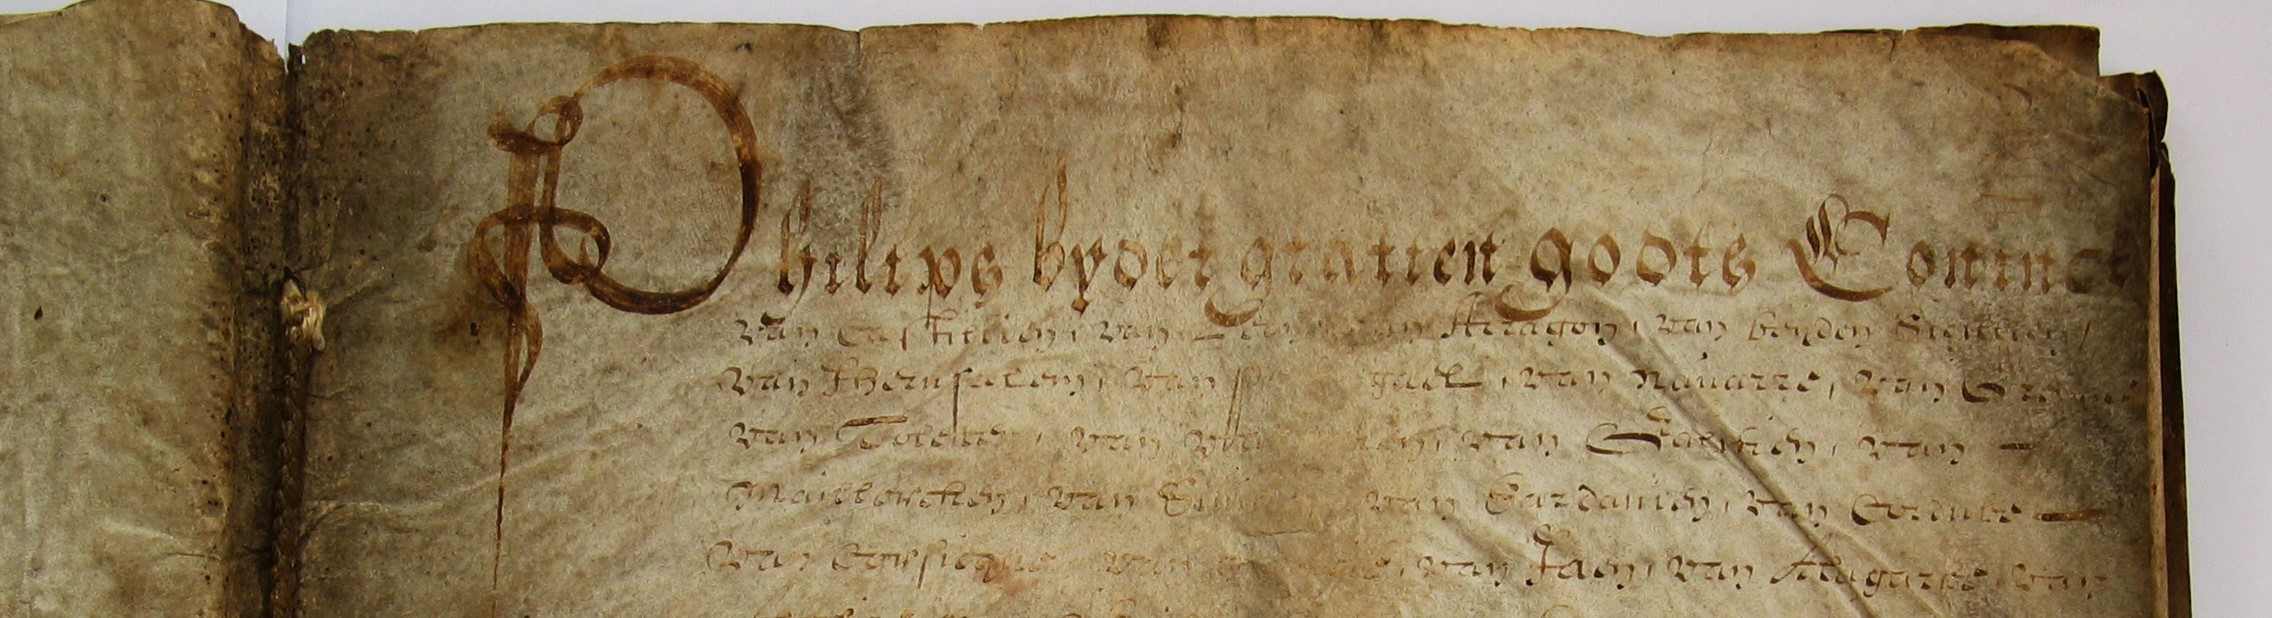 Philips byder gratien goodts Coninck
van Castillien, van Leon, van Arragon, van beyden Sicillien,
van Jherusalem, van gael, van Navarre, van
van Tolette, van van Gallicien, van
Maillorcken, van van Sardanien, van Corduve
van Corsicque van van Jaen, van Algarbe van